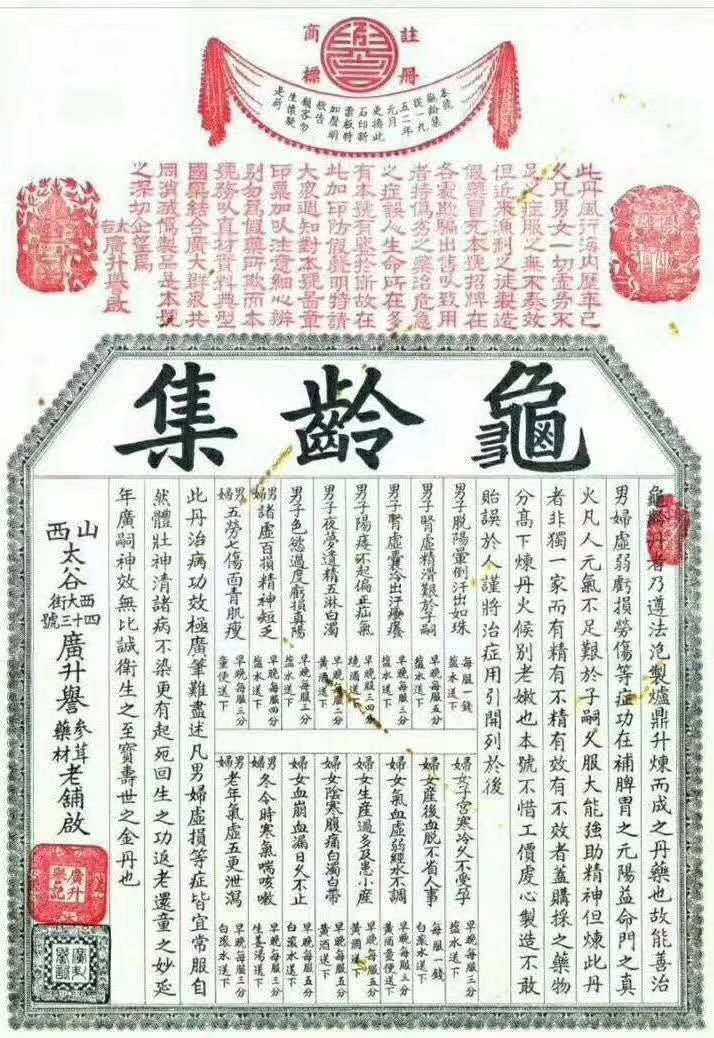 註冊
商標
本號
龜齡集
從一九
五二年
元月
更換此
石印新
票板特
加聲明
敬告
顧客勿
生懷疑
是荷
此丹風行海內歷年已
久凡男女一切虛勞不
足之症服之無不奏效
但近來漁利之徒製造
假藥冒充本號招牌在
各處欺騙出售以致用
者持偽劣之藥治危急
之症誤人生命所在多
有本號有鑒於斯故在
此加印防假聲明特請
大家週知對本號圖章
印票加以注意細心辨
別勿為假藥所欺而本
號務以真材實料典型
國藥結合廣大群眾共
同消滅偽製品是本號
之深切企望焉
太谷廣升譽啟
龜齡集
龜齡丹者乃遵法泡製爐鼎升煉而成之丹藥也故能善治
男婦虛弱虧損勞傷等症功在補脾胃之元陽益命門之真
火凡人元氣不足艱於子嗣久服大能強助精神但煉此丹
者非獨一家而有精有不精有效有不效者蓋購採之藥物
分高下煉丹火候別老嫩也本號不惜工價虔心製造不敢
貽誤於人謹將治症用引開列於後
男子脫陽暈倒汗出如珠 每服一錢 鹽水送下
男子腎虛精滑艱於子嗣 早晚每服五分 鹽水送下
男子腎虛囊冷出汗燥癢 早晚每服三分 鹽水送下
男子陽痿不起偏正疝氣 早晚服三四分 燒酒送下
男子夜夢遺精五淋白濁 早晚每服三分 黃酒送下
男子色慾過度虧損真陽 早晚每服三分 鹽水送下
男婦諸虛百損精神短乏 早晚每服四分 鹽水送下
男婦五勞七傷面青肌瘦 早晚每服三分 童便送下
婦女子宮寒冷久不受孕 早晚每服三分 鹽水送下
婦女產後血脫不省人事 每服一錢 白滾水送下
婦女氣血虛弱經水不調 早晚每服三分 黃酒童便送下
婦女生產過多及患小產 早晚每服五分 黃酒送下
婦女陰寒腹痛白濁白帶 早晚每服五分 黃酒送下
婦女血崩血漏日久不止 早晚每服五分 白滾水送下
男婦冬令時寒氣喘咳嗽 早晚每服三分 生姜湯送下
男婦老年氣虛五更泄瀉 早晚每服三分 白滾水送下
此丹治病功效極廣筆難盡述凡男婦虛損等症皆宜常服自
然體壯神清諸病不染更有起死回生之功返老還童之妙延
年廣嗣神效無比誠衛生之至寶壽世之金丹也
山西太谷西大街四十三號廣升譽參茸藥材老舖啟
廣升
譽記